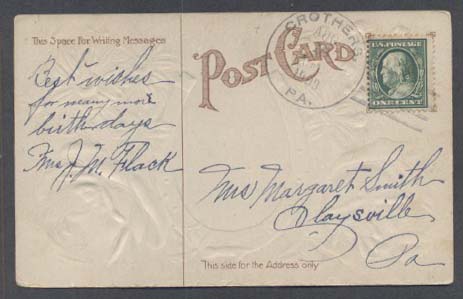 This Space For Writing Messages
Best wishes
for many more
birthdays
Mrs J. M. Flack
POST CARD
CROTHERS
1909
PA.
U.S. POSTAGE
ONE CENT
Mrs Margaret Smith
Claysville
Pa
This side for the Address only